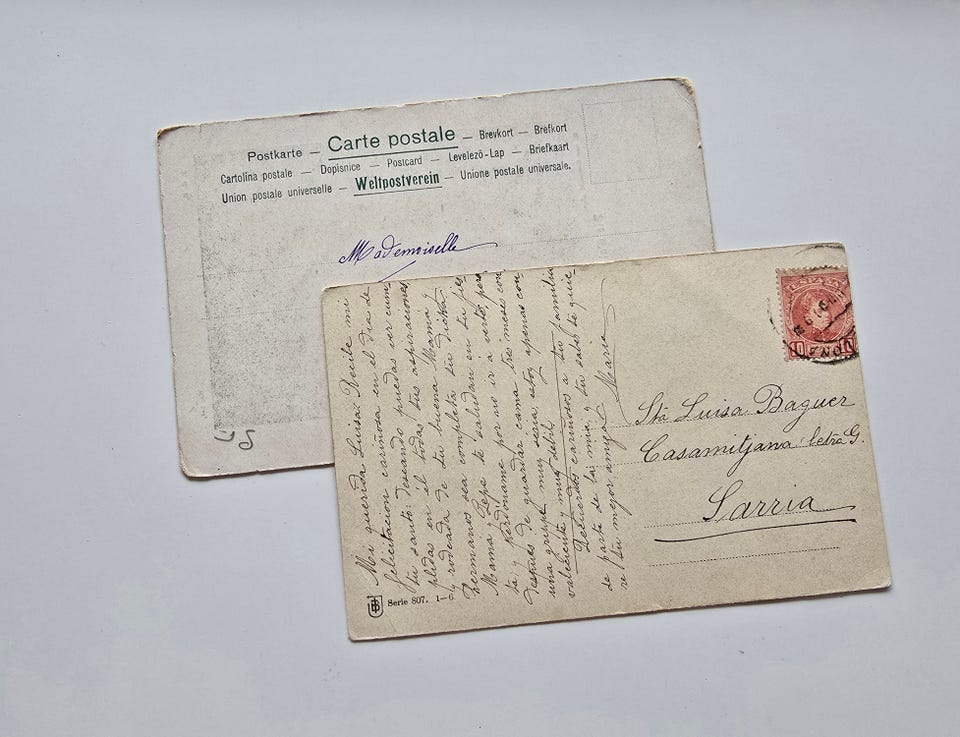 Postkarte — Carte postale — Brevkort — Brefkort
Cartolina postale — Dopisnice — Postcard — Levelező-Lap — Briefkaart
Union postale universelle — Weltpostverein — Unione postale universale.
Mademoiselle
Mi querida Luisa: Recibe mi
felicitacion cariñosa en el dia de
tu santo: deseando puedas ver cum
plidas en el todas tus aspiraciones
y rodeada de tu buena Mama y
hermanos sea completa tu dicha.
Mama y Pepe te saludan en tu
Perdoname por no ir a verte, pero
despues de guardar cama tres meses con
una grippe muy seria, estoy apenas con
valeciente y muy debil,
Recuerdos cariñosos a tu familia
de parte de la mia, y tu sabes te quie
re tu mejor amiga
Maria
Serie 807. 1-
ESPAÑA
10 10
Sta Luisa Baguer
Casamitjana letra G.
Sarria